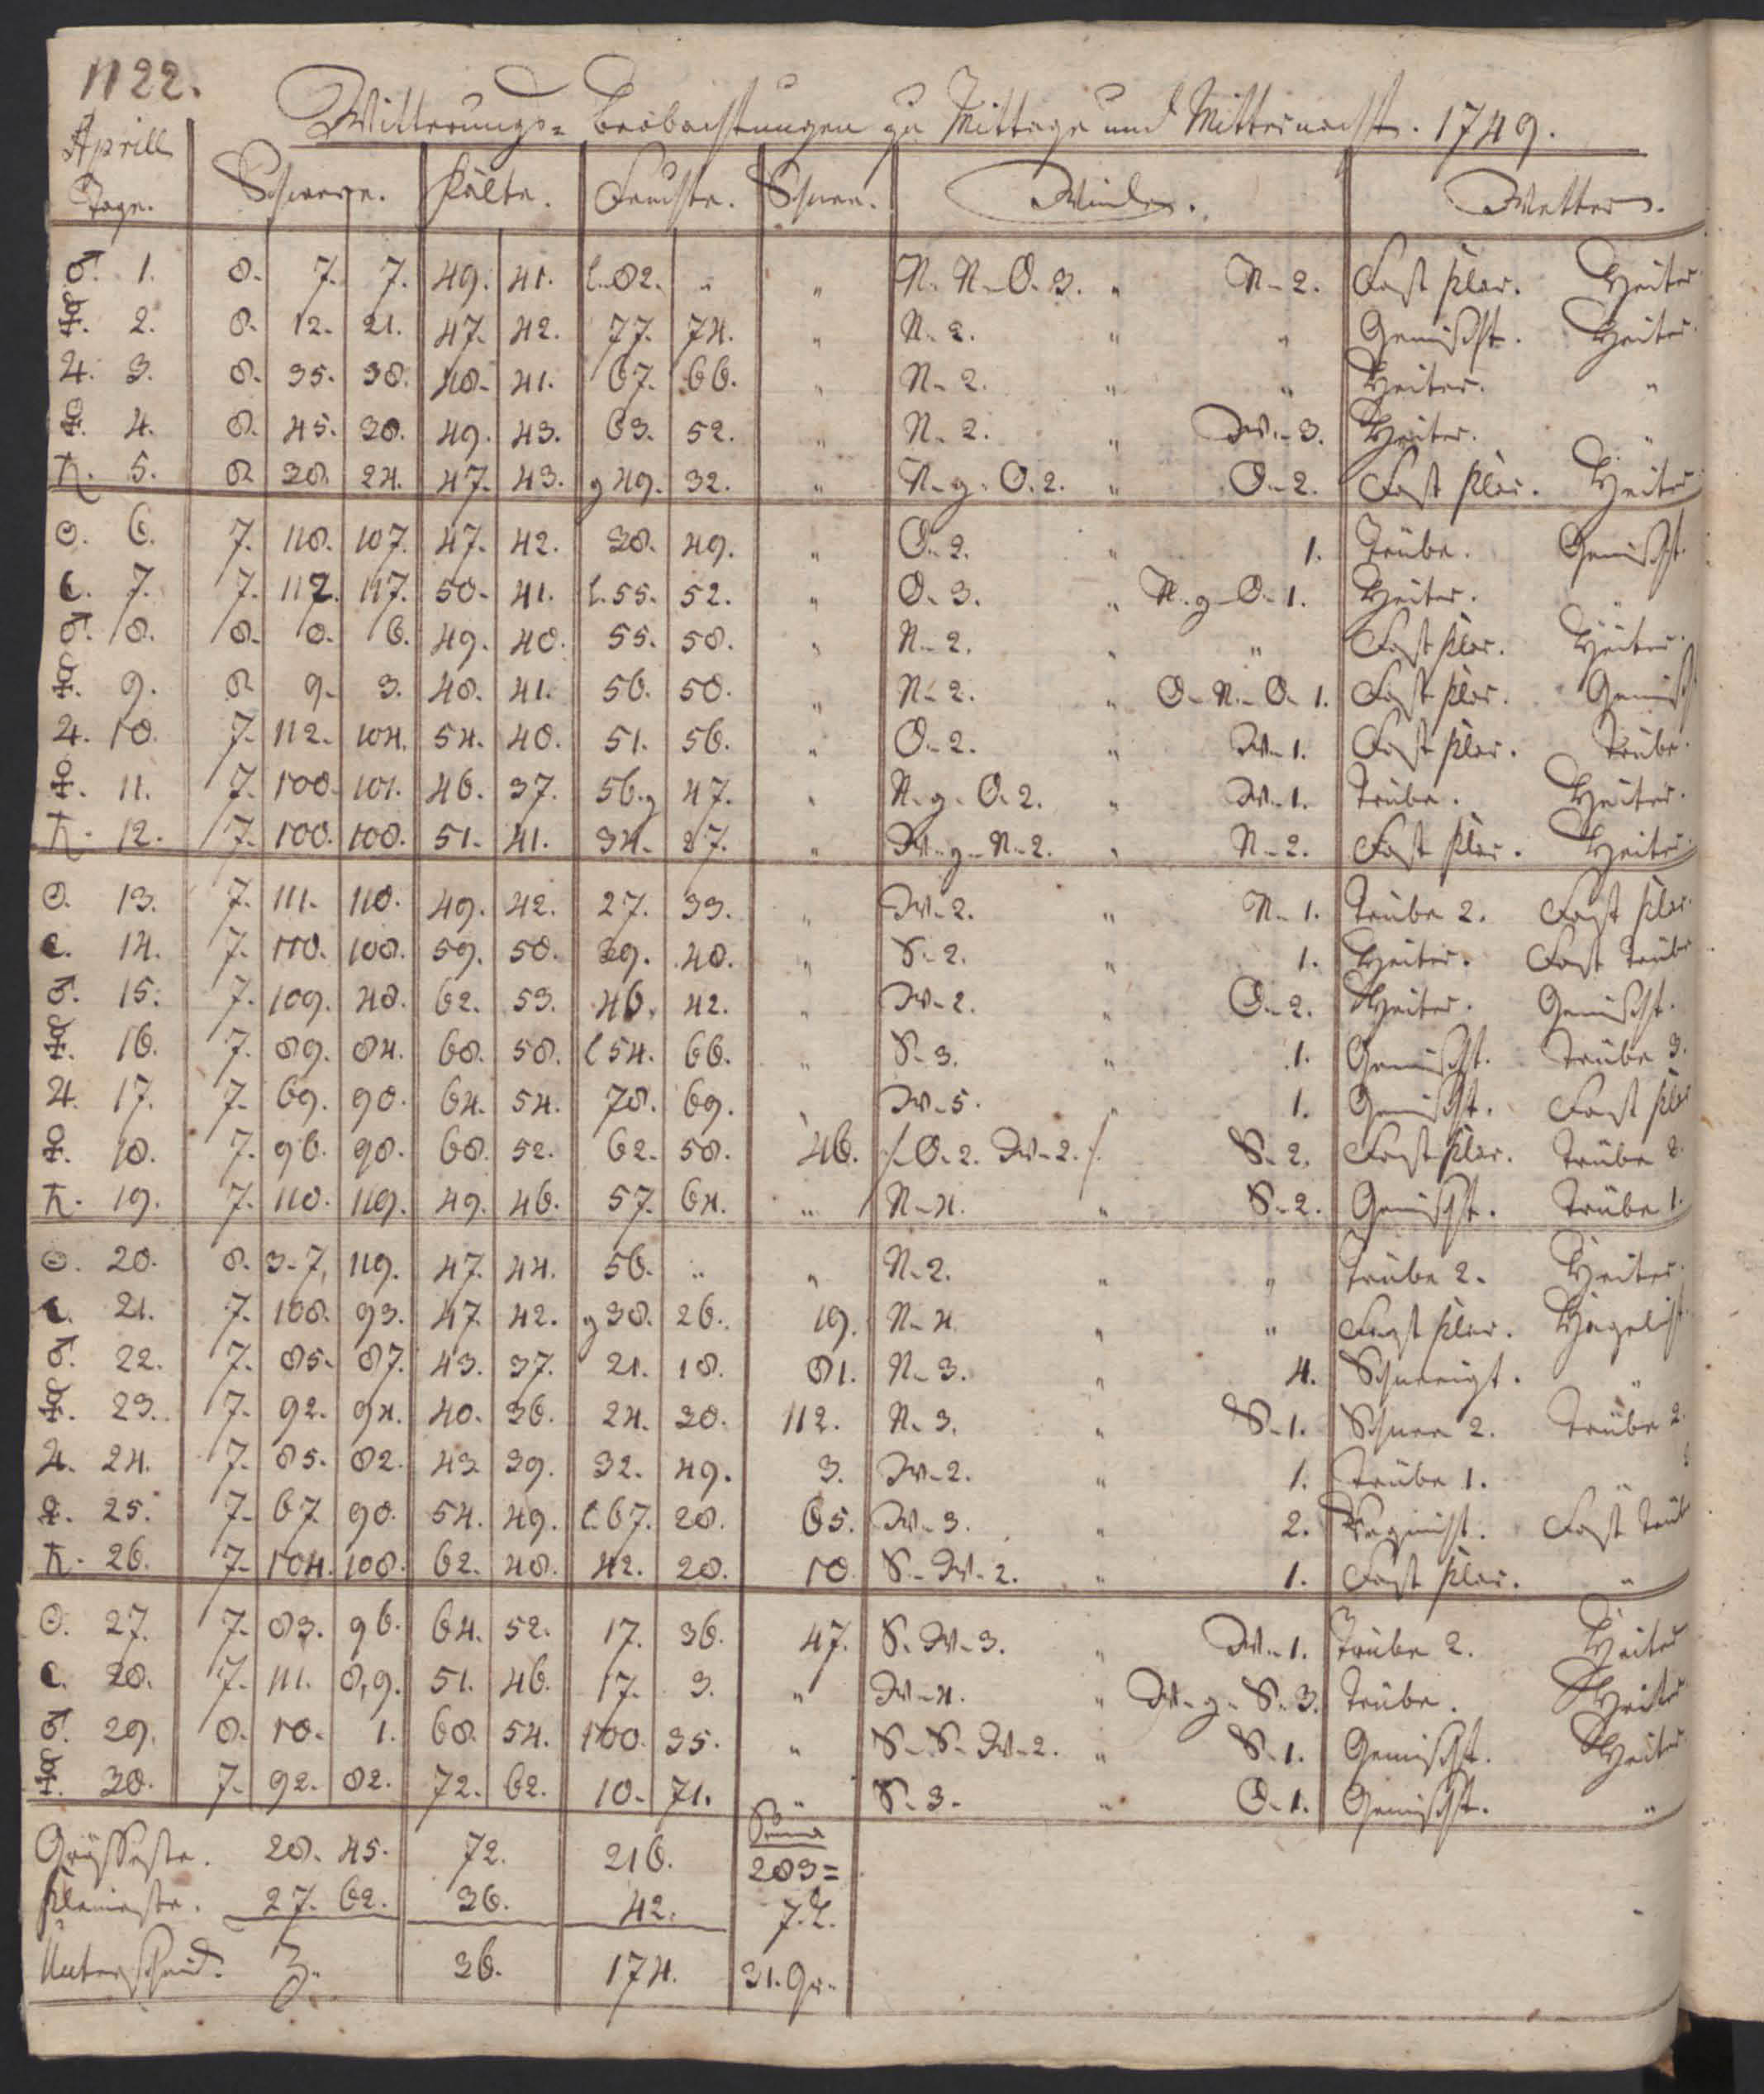 1122.
Witterungs= Beobachtungen zu Mittage und Mitternacht. 1749.
Aprill
Tage. Schwere. Kälte. Feuchte. Schnee. Winde. Wetter.
♂. 1. 8. 7. 7. 49. 41. l. 82. " " N. N-O. 3. " N-2. Fast klar. Heiter.
☿. 2. 8. 12. 21. 47. 42. 77. 74. " N. 2. " " Gemischt. Heiter.
♃. 3. 8. 35. 38. 48. 41. 67. 66. " N-2. " " Heiter. "
♀. 4. 8. 45. 38. 49. 43. 63. 52. " N. 2. " W.-3. Heiter. "
♄. 5. 8. 28. 24. 47. 43. g 49. 32. " N-g. O. 2. " O-2. Fast klar. Heiter.
☉. 6. 7. 118. 107. 47. 42. 38. 49. " O-2. " 1. Trübe. Gemischt.
☾. 7. 7. 112. 117. 50. 41. l. 55. 52. " O-3. " N.g-O-1. Heiter. "
♂. 8. 8. 0. 6. 49. 40. 55. 58. " N-2. " " Fast klar. Heiter.
☿. 9. 8. 9. 3. 48. 41. 56. 50. " N-2. " O-N.-O-1. Fast klar. Gemischt
♃. 10. 7. 112. 104. 54. 40. 51. 56. " O-2. " W-1. Fast klar. Trübe.
♀. 11. 7. 100. 101. 46. 37. 56. g 47. " N.g. O. 2. " W-1. Trübe. Heiter.
♄. 12. 7. 100. 108. 51. 41. 34. 27. " W-g-N-2. " N-2. Fast klar. Heiter.
☉. 13. 7. 111. 110. 49. 42. 27. 33. " W-2. " N-1. Trübe 2. Fast klar.
☾. 14. 7. 110. 108. 59. 50. 39. 40. " S-2. " 1. Heiter. Fast trübe
♂. 15. 7. 109. 48. 62. 53. 46. 42. " W-2. " O-2. Heiter. Gemischt.
☿. 16. 7. 89. 84. 68. 58. l 54. 66. " S-3. " 1. Gemischt. Trübe 3.
♃. 17. 7. 69. 90. 64. 54. 78. 69. " W-5. " 1. Gemischt. Fast klar
♀. 18. 7. 96. 98. 68. 52. 62. 58. 46. /.O.2. W-2./. S-2. Fast klar. Trübe 2.
♄. 19. 7. 110. 119. 49. 46. 57. 64. " N-4. " S-2. Gemischt. Trübe 1.
☉. 20. 8. 3-7, 119. 47. 44. 56. " " N-2. " " Trübe 2. Heiter.
☾. 21. 7. 108. 93. 47. 42. g 38. 26. 19. N-4. " " Fast klar. Hagelicht.
♂. 22. 7. 85. 87. 43. 37. 21. 18. 81. N-3. " 4. Schneeigt. "
☿. 23. 7. 92. 94. 40. 36. 24. 30. 112. N. 3. " S-1. Schnee 2. Trübe 2.
♃. 24. 7. 85. 82. 43. 39. 32. 49. 3. W-2. " 1. Trübe 1. "
♀. 25. 7. 67. 90. 54. 49. l. 67. 28. 65. W-3. " 2. Regnicht. Fast trübe
♄. 26. 7. 104. 108. 62. 48. 42. 20. 10. S-W-2. " 1. Fast klar. "
☉. 27. 7. 83. 96. 64. 52. 17. 36. 47. S. W-3. " W-1. Trübe 2. Heiter
☾. 28. 7. 111. 8,9. 51. 46. 17. 3. " W-4. " W-g-S-3. Trübe. Heiter
♂. 29. 8. 10. 1. 68. 54. 100. 35. " S-S-W-2. " S-1. Gemischt. Heiter.
☿. 30. 7. 92. 82. 72. 62. 10. 71. " S-3. " O-1. Gemischt. "
Grösseste. 28. 45. 72. 216. 283=
Kleineste. 27. 62. 36. 42.
Unterscheid. 36. 174. 31. Gr.